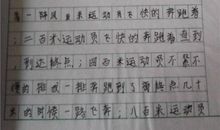 看一阵风百米运动员飞快的奔跑着
;二百米运动员飞快的奔跑着直到
到达终点;四百米运动员不紧不
慢的排成一排奔跑到了离终点几十
米的时候一路飞奔;八百米运动员